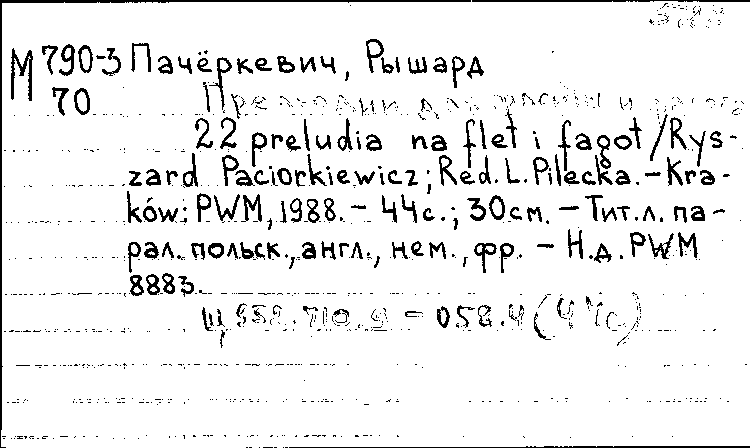 М 790-3 Пачёркевич, Рышард
70
для и
22 preludia na flet i fagot / Rys-
zard Paciorkiewicz; Red. L. Pilecka. - Kra-
ków: PWM, 1988. - 44 с.; 30 см. - Тит. л. па-
рал. польск., англ., нем., фр. - Н. д. PWM
8883.
Щ 958.710.9 - 058.4 (4 Чс)